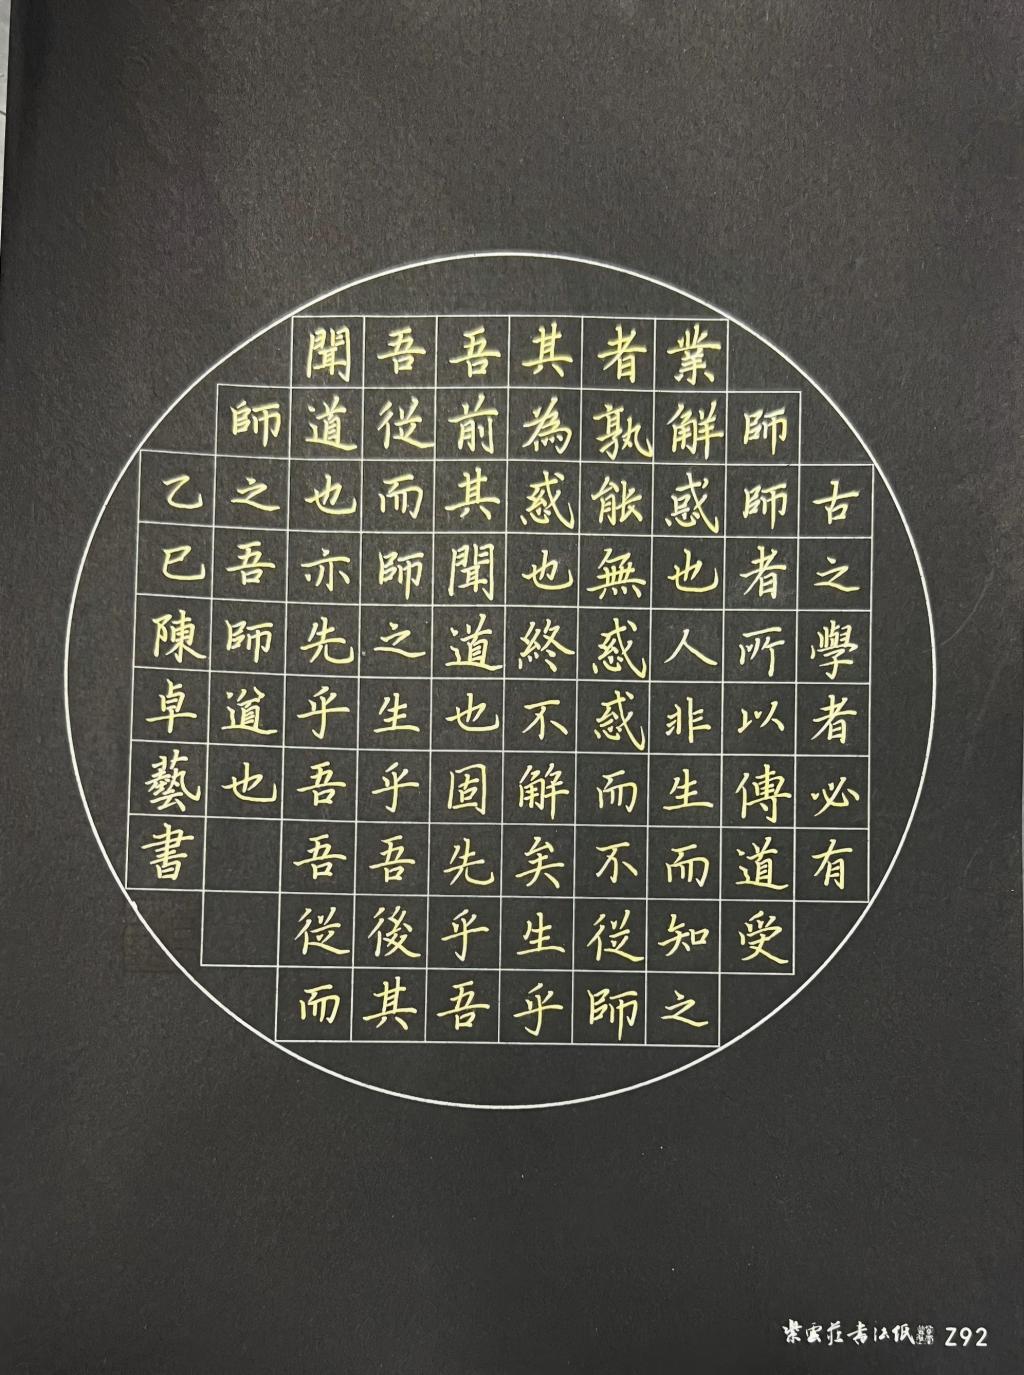 古之學者必有
師師者所以傳道受
業解惑也人非生而知之
者孰能無惑惑而不從師
其為惑也終不解矣生乎
吾前其聞道也固先乎吾
吾從而師之生乎吾後其
聞道也亦先乎吾吾從而
師之吾師道也
乙巳陳卓藝書
紫雲莊書法紙 Z92